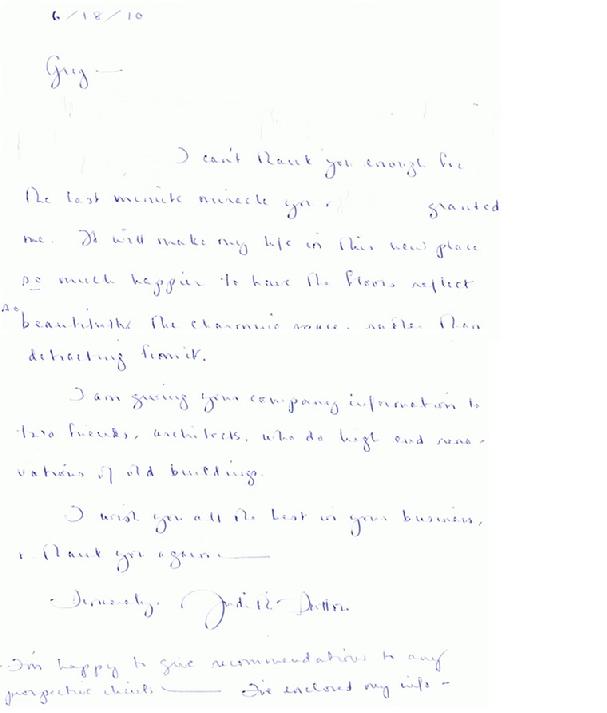 6/18/10
Greg —
I can't thank you enough for
the last minute miracle you granted
me. It will make my life in this new place
so much happier to have the floors reflect
so
beautifully the charming space, rather than
detracting from it.
I am giving your company information to
two friends, architects, who do high end reno-
vations of old buildings.
I wish you all the best in your business,
& thank you again —
Sincerely, Judith
I'm happy to give recommendations to any
prospective clients — I've enclosed my info -